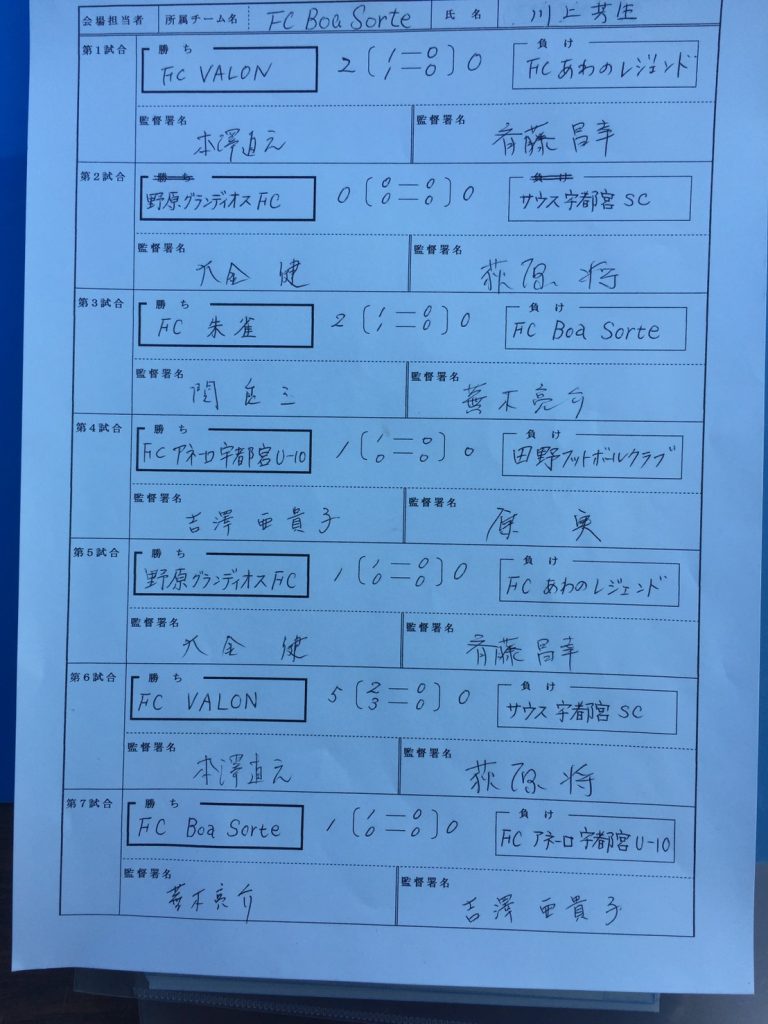 会場担当者 所属チーム名 FC Boa Sorte 氏名 川上芳生
第1試合 勝ち 負け
FC VALON 2 (1-0 1-0) 0 FCあわのレジェンド
監督署名 監督署名
本澤直元 斉藤昌幸
第2試合 勝ち 負け
野原グランディオスFC 0 (0-0 0-0) 0 サウス宇都宮SC
監督署名 監督署名
大金 健 荻原 将
第3試合 勝ち 負け
FC 朱雀 2 (1-0 1-0) 0 FC Boa Sorte
監督署名 監督署名
亮介
第4試合 勝ち 負け
FCアネーロ宇都宮U-10 1 (1-0 0-0) 0 田野フットボールクラブ
監督署名 監督署名
吉澤 亜貴子 原 実
第5試合 勝ち 負け
野原グランディオスFC 1 (1-0 0-0) 0 FCあわのレジェンド
監督署名 監督署名
大金 健 斉藤昌幸
第6試合 勝ち 負け
FC VALON 5 (2-0 3-0) 0 サウス宇都宮SC
監督署名 監督署名
本澤直元 荻原 将
第7試合 勝ち 負け
FC Boa Sorte 1 (1-0 0-0) 0 FC アネーロ宇都宮U-10
監督署名 監督署名
亮介 吉澤 亜貴子